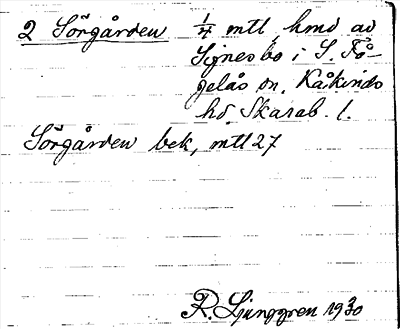 2 Sörgården 1/4 mtl, hmd av
Signesbo i S. Få-
gelås sn, Kåkinds
hd Skarab. l.
Sörgården bek, mtl 27
R. Ljunggren 1930